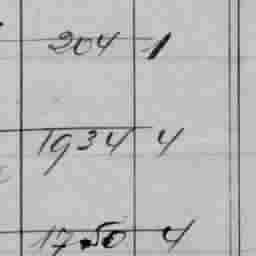 204 1
1934 4
1750 4